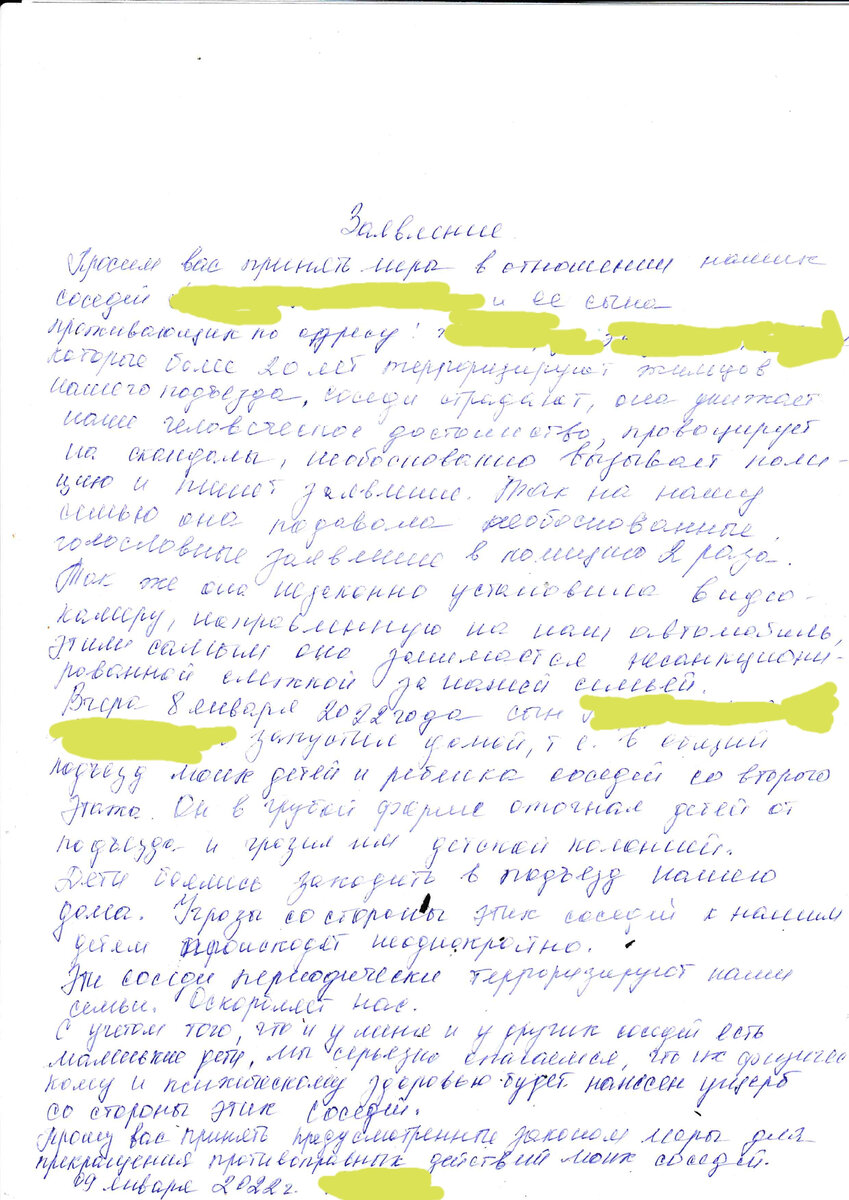 Заявление
Просим вас принять меры в отношении наших
соседей и ее сына
проживающих по адресу:
которые более 20 лет терроризируют жильцов
нашего подъезда, соседи страдают, она унижает
наше человеческое достоинство, провоцирует
на скандалы, необоснованно вызывает поли-
цию и пишет заявление. Так на нашу
семью она подавала необоснованные,
голословные заявление в полицию 2 раза.
Так же она незаконно установила видео-
камеру, направленную на наш автомобиль,
этим самым она занимается несанкциони-
рованной слежкой за нашей семьей.
Вчера 8 января 2022 года сын
запустил домой, т. е. в общий
подъезд моих детей и ребенка соседей со второго
этажа. Он в грубой форме отогнал детей от
подъезда и грозил им детской колонией.
Дети боялись заходить в подъезд нашего
дома. Угрозы со стороны этих соседей к нашим
детям происходят неоднократно.
Эти соседи периодически терроризируют наши
семьи. Оскорбляет нас.
С учетом того, что и у меня и у других соседей есть
маленькие дети, мы серьезно опасаемся, что их физичес-
кому и психическому здоровью будет нанесен ущерб
со стороны этих соседей.
Прошу вас принять предусмотренные законом меры для
прекращения противоправных действий моих соседей.
09 января 2022 г.